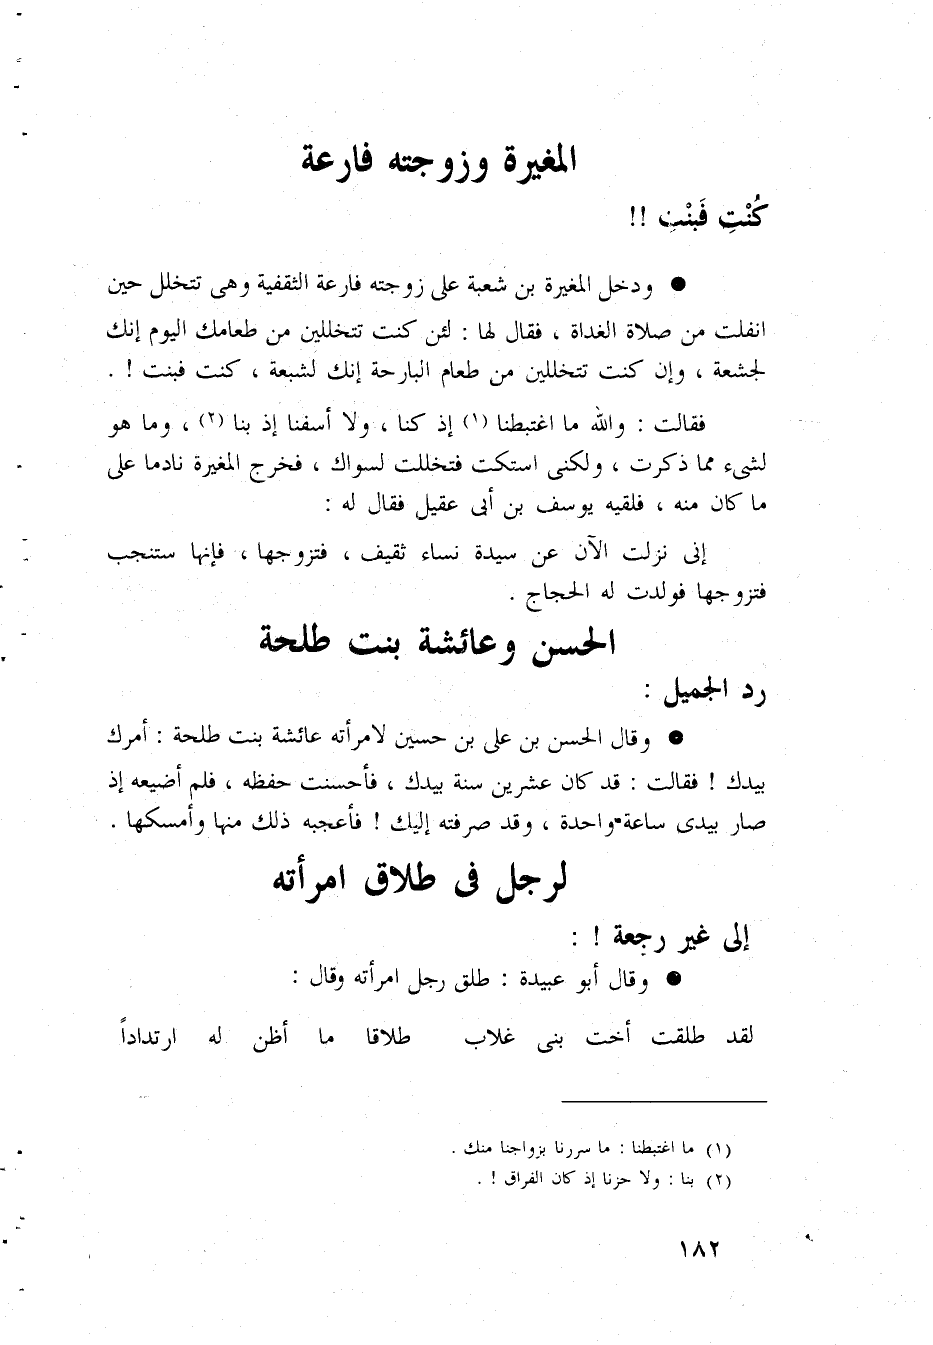 المغيرة وزوجته فارعة
كُنْتِ فَبِنْتِ !!
● ودخل المغيرة بن شعبة على زوجته فارعة الثقفية وهى تتخلل حين
انفلت من صلاة الغداة ، فقال لها : لئن كنت تتخللين من طعامك اليوم إنك
لجشعة ، وإن كنت تتخللين من طعام البارحة إنك لشبعة ، كنت فبنت ! .
فقالت : والله ما اغتبطنا (١) إذ كنا ، ولا أسفنا إذ بنا (٢) ، وما هو
لشىء مما ذكرت ، ولكنى استكت فتخللت لسواك ، فخرج المغيرة نادما على
ما كان منه ، فلقيه يوسف بن أبى عقيل فقال له :
إنى نزلت الآن عن سيدة نساء ثقيف ، فتزوجها ، فإنها ستنجب
فتزوجها فولدت له الحجاج .
الحسن وعائشة بنت طلحة
رد الجميل :
● وقال الحسن بن على بن حسين لامرأته عائشة بنت طلحة : أمرك
بيدك ! فقالت : قد كان عشرين سنة بيدك ، فأحسنت حفظه ، فلم أضيعه إذ
صار بيدى ساعة واحدة ، وقد صرفته إليك ! فأعجبه ذلك منها وأمسكها .
لرجل فى طلاق امرأته
إلى غير رجعة ! :
● وقال أبو عبيدة : طلق رجل امرأته وقال :
لقد طلقت أخت بنى غلاب طلاقا ما أظن له ارتداداً
(١) ما اغتبطنا : ما سررنا بزواجنا منك .
(٢) بنا : ولا حزنا إذ كان الفراق ! .
١٨٢